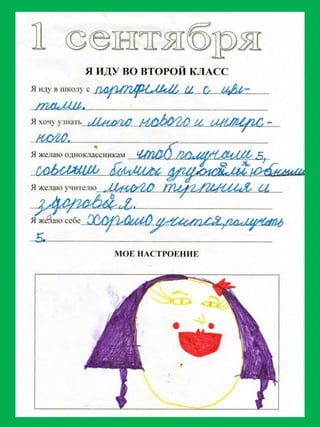 1 сентября
Я ИДУ ВО ВТОРОЙ КЛАСС
Я иду в школу с портфелем и с цве-
тами.
Я хочу узнать много нового и интерс-
ного.
Я желаю одноклассникам чтоб получали 5,
были дружелюбными
Я желаю учителю много терпения и
здоровья.
Я желаю себе Хорошо учится, получать
5.
МОЕ НАСТРОЕНИЕ